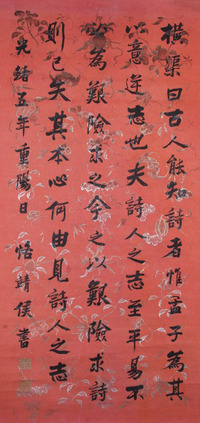 橫渠曰古人能知詩者惟孟子為其
以意逆志也夫詩人之志至平易不
必為艱險求之今之以艱險求詩
則已失其本心何由見詩人之志
光緒五年重陽日 恪靖侯書